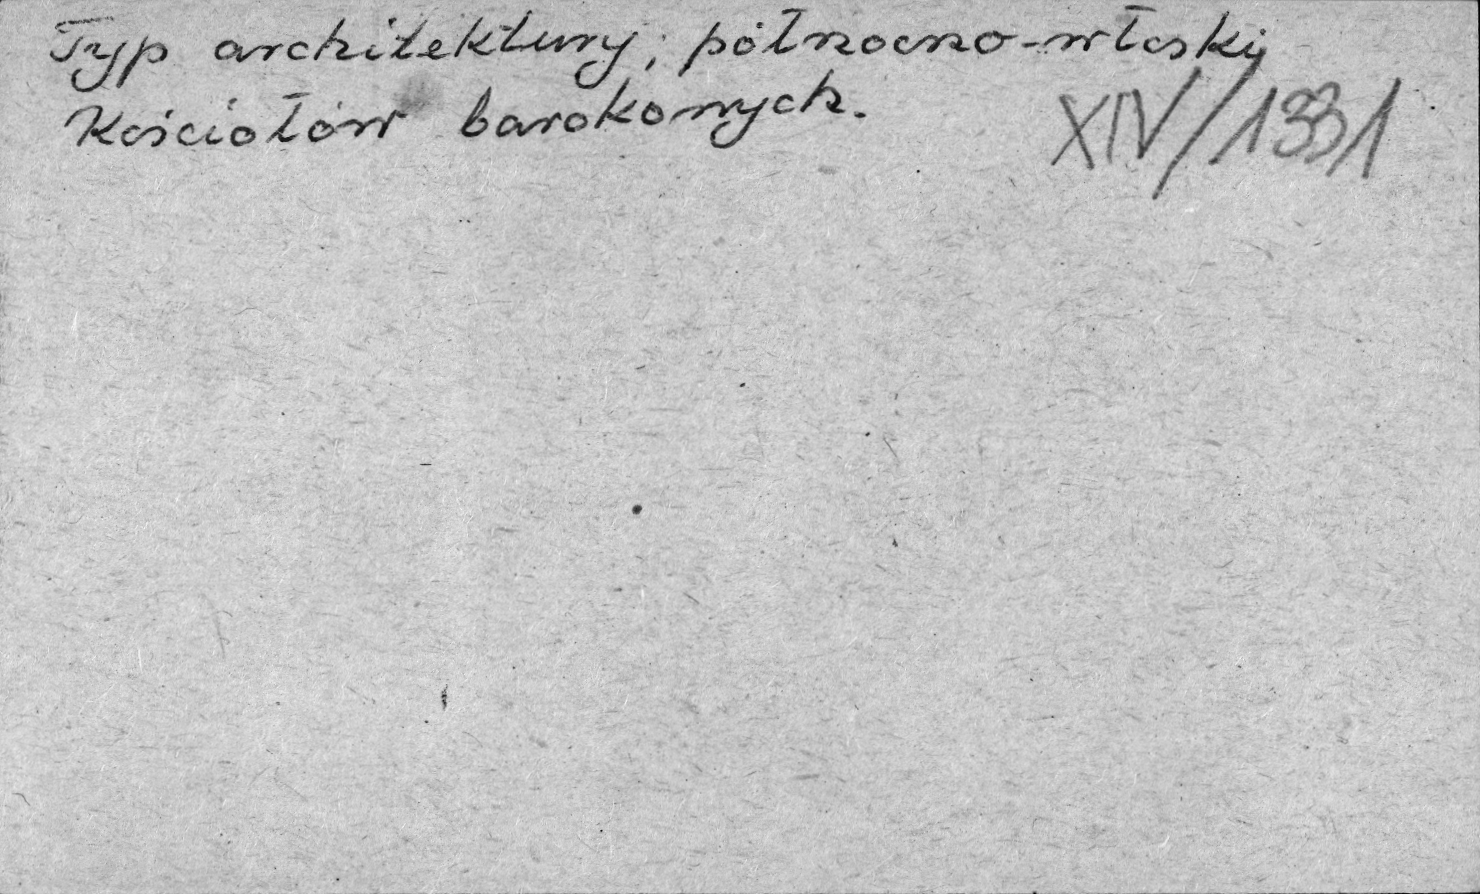 Typ architektury; północno-włoskiej
Kościołów barokowych.
XIV/1331